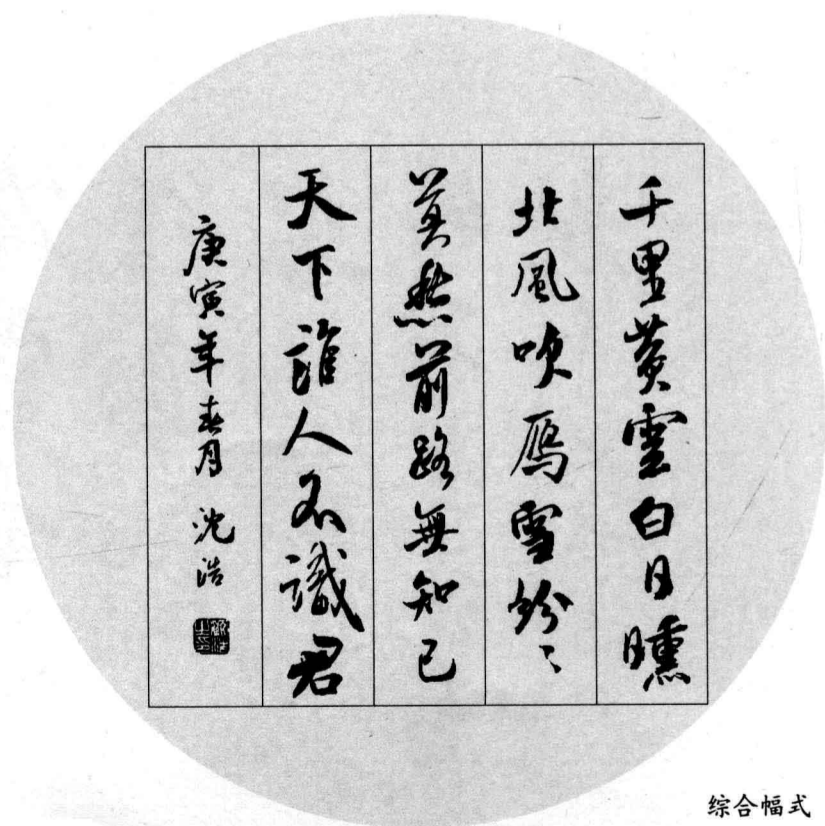 千里黄雲白日曛
北風吹雁雪紛〻
莫愁前路無知己
天下誰人不識君
庚寅年春月 沈浩
综合幅式